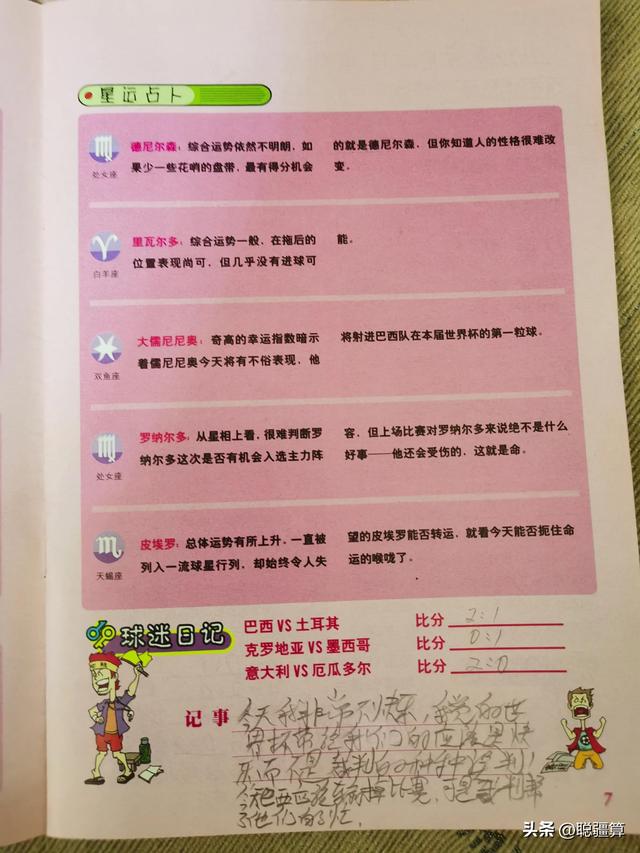 星运占卜
德尼尔森：综合运势依然不明朗，如
果少一些花哨的盘带，最有得分机会
的就是德尼尔森，但你知道人的性格很难改
变。
处女座
里瓦尔多：综合运势一般，在拖后的
位置表现尚可，但几乎没有进球可
能。
白羊座
大儒尼尼奥：奇高的幸运指数暗示
着儒尼尼奥今天将有不俗表现，他
将射进巴西队在本届世界杯的第一粒球。
双鱼座
罗纳尔多：从星相上看，很难判断罗
纳尔多这次是否有机会入选主力阵
容，但上场比赛对罗纳尔多来说绝不是什么
好事——他还会受伤的，这就是命。
处女座
皮埃罗：总体运势有所上升。一直被
列入一流球星行列，却始终令人失
望的皮埃罗能否转运，就看今天能否扼住命
运的喉咙了。
天蝎座
球迷日记
巴西 VS 土耳其 比分 2:1
克罗地亚 VS 墨西哥 比分 0:1
意大利 VS 厄瓜多尔 比分 2:0
记事
今天我非常不快乐，我觉的世
界杯带给我们的应该是快
乐而不是裁判的
今天巴西应该输掉比赛，可是裁判帮
了他们的忙。
7
头条 @聪疆算